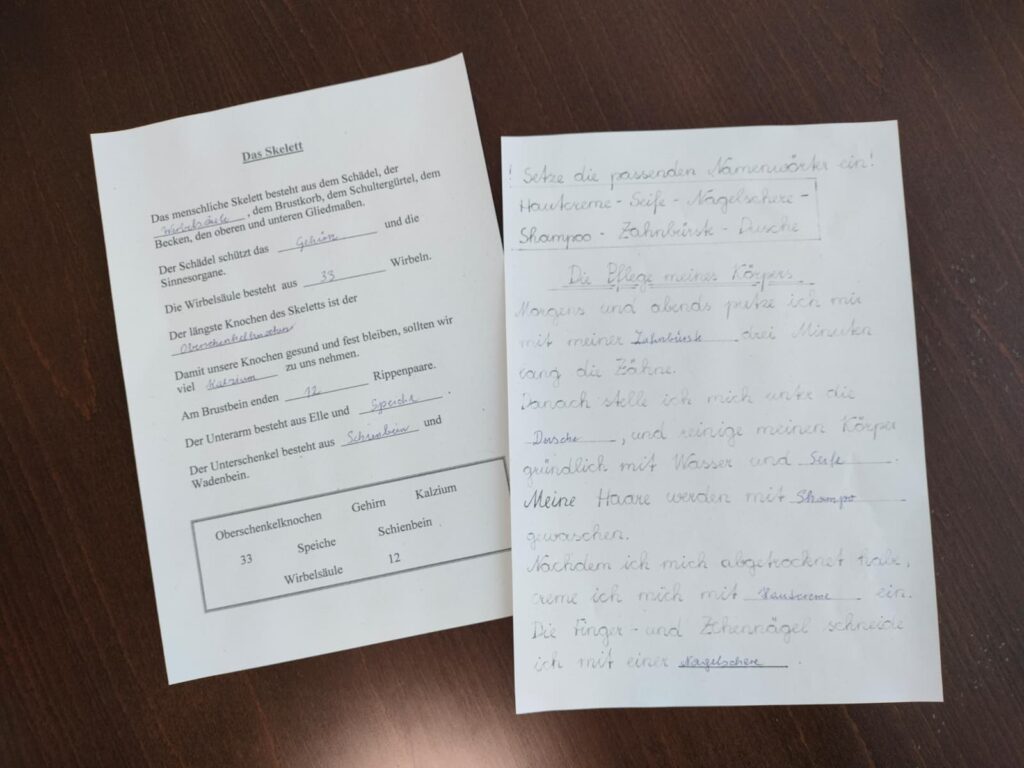 Das Skelett
Das menschliche Skelett besteht aus dem Schädel, der
Wirbelsäule, dem Brustkorb, dem Schultergürtel, dem
Becken, den oberen und unteren Gliedmaßen.
Der Schädel schützt das Gehirn und die
Sinnesorgane.
Die Wirbelsäule besteht aus 33 Wirbeln.
Der längste Knochen des Skeletts ist der
Oberschenkelknochen
Damit unsere Knochen gesund und fest bleiben, sollten wir
viel Kalzium zu uns nehmen.
Am Brustbein enden 12 Rippenpaare.
Der Unterarm besteht aus Elle und Speiche.
Der Unterschenkel besteht aus Schienbein und
Wadenbein.
Oberschenkelknochen Gehirn Kalzium
33 Speiche Schienbein
Wirbelsäule 12
! Setze die passenden Namenwörter ein!
Hautcreme - Seife - Nagelschere -
Shampoo - Zahnbürste - Dusche
Die Pflege meines Körpers
Morgens und abends putze ich mir
mit meiner Zahnbürste drei Minuten
lang die Zähne.
Danach stelle ich mich unter die
Dusche, und reinige meinen Körper
gründlich mit Wasser und Seife.
Meine Haare werden mit Shampo
gewaschen.
Nachdem ich mich abgetrocknet habe,
creme ich mich mit Hautcreme ein.
Die Finger- und Zehennägel schneide
ich mit einer Nagelschere.